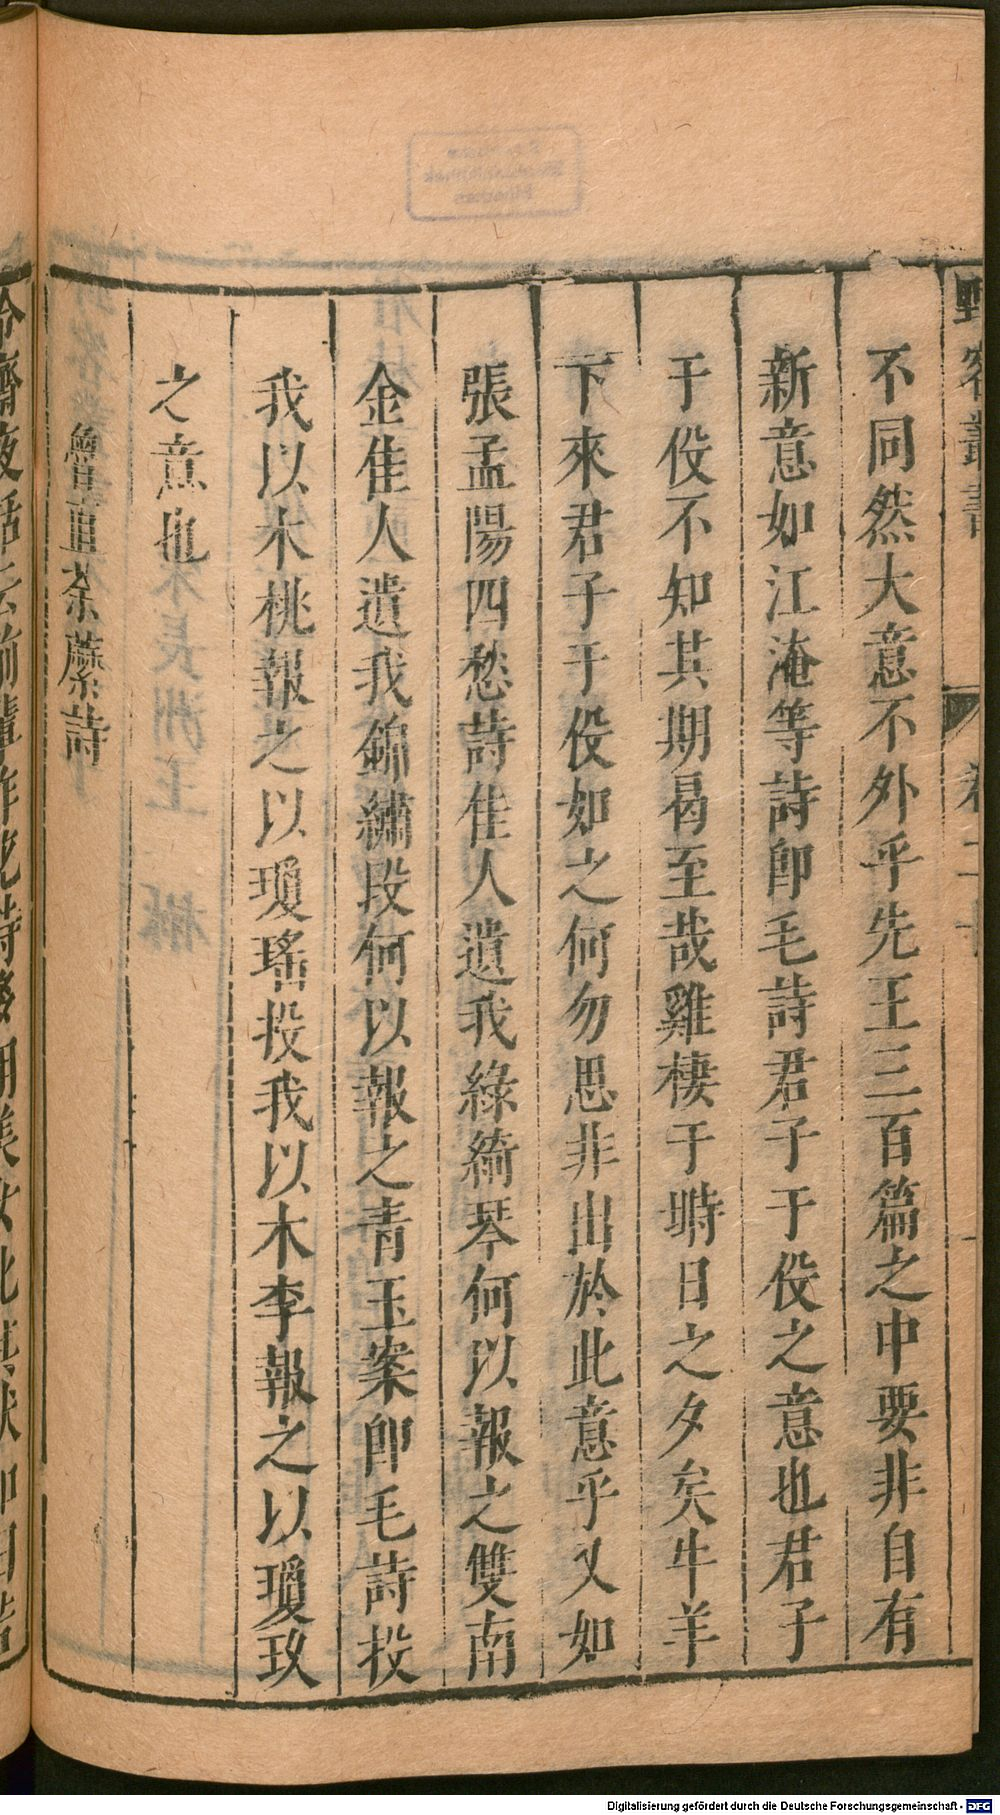 野客叢書
卷二十
不同然大意不外乎先王三百篇之中要非自有
新意如江淹等詩卽毛詩君子于役之意也君子
于役不知其期曷至哉雞棲于塒日之夕矣牛羊
下來君子于役如之何勿思非出於此意乎又如
張孟陽四愁詩佳人遺我綠綺琴何以報之雙南
金佳人遺我錦繡段何以報之青玉案卽毛詩投
我以木桃報之以瓊瑤投我以木李報之以瓊玖
之意也
魯直荼蘼詩
冷齋夜話云前輩作花詩多用美女比其狀如曰
Digitalisierung gefördert durch die Deutsche Forschungsgemeinschaft - DFG